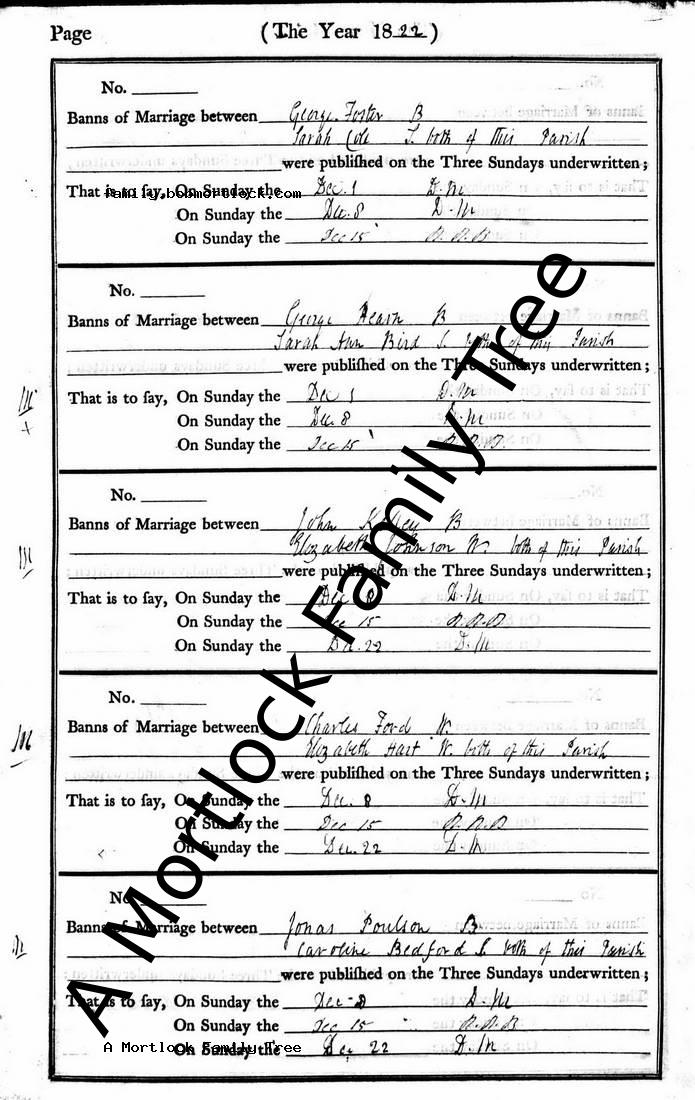 Page (The Year 1822)
No.
Banns of Marriage between George Foster B
Sarah Cole S. both of this Parish
were publiſhed on the Three Sundays underwritten;
That is to ſay, On Sunday the Dec. 1 D.M
family.bobmortlock.com
On Sunday the Dec. 8 D.M
On Sunday the Dec 15
No.
Banns of Marriage between George Hearn B
Sarah Ann Bird S. both of this Parish
were publiſhed on the Three Sundays underwritten;
That is to ſay, On Sunday the Dec 1 D.M
On Sunday the Dec. 8 D.M
On Sunday the Dec 15
No.
Banns of Marriage between John B
Elizabeth Johnson W. both of this Parish
were publiſhed on the Three Sundays underwritten;
That is to ſay, On Sunday the Dec 8 D.M
On Sunday the Dec 15
On Sunday the Dec. 22 D.M
No.
Banns of Marriage between Charles Ford W.
Elizabeth Hart W. both of this Parish
were publiſhed on the Three Sundays underwritten;
That is to ſay, On Sunday the Dec. 8 D.M
On Sunday the Dec 15
On Sunday the Dec. 22 D.M
No.
Banns of Marriage between Jonas Poulson B
Caroline Bedford S. both of this Parish
were publiſhed on the Three Sundays underwritten;
That is to ſay, On Sunday the Dec. 8 D.M
On Sunday the Dec 15
On Sunday the Dec 22 D.M
A Mortlock Family Tree
A Mortlock Family Tree